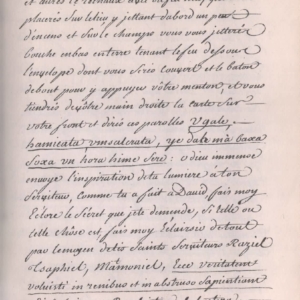 placerés sur le feu y jettant d'abord un peu
d'encens et sur le champ vous vous jetterés
bouche en bas en terre tenant le feu dessous
l'enveloppe dont vous serés couvert et le baton
debout pour y appuyer votre menton, et vous
tiendrés de vôtre main droite la carte sur
votre front et dirés ces parolles Vgale,
hamicata vmsalcrata, ye dahe mà baxa
Soxa vn hora hime Seré: o dieu immense
envoye l'inspiration de ta lumiere à ton
Serviteur, Comme tu a fait a David, fais moy
Eclore le Secret que je te demande, Si telle ou
telle chose est, fais moy Eclaircir de tout
par le moyen de tes Saints Serviteurs Raziel
Tsaphiel, Mâmoniel, Ecce veritatem
voluisti in renibus et in abstruso Sapientiam